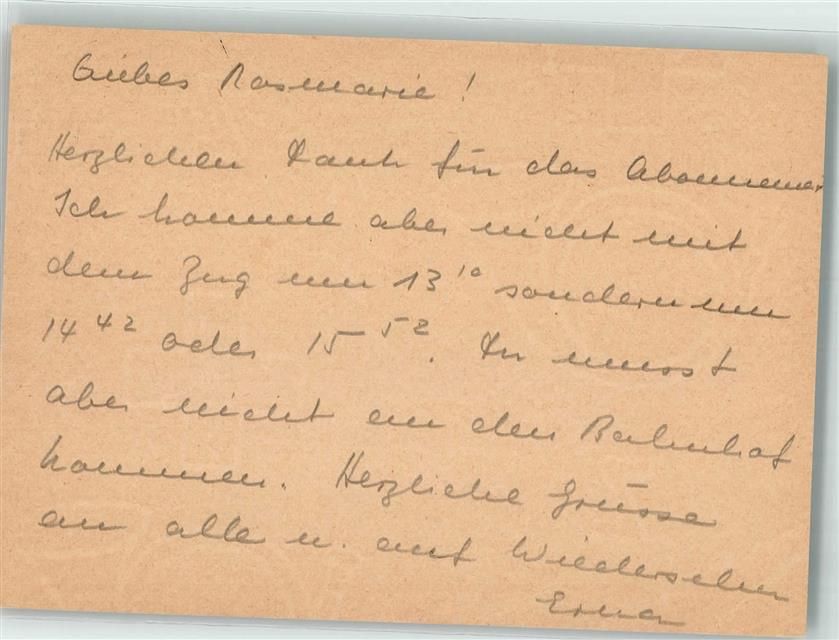 Liebes Rosmarie !
Herzlichen Dank für das Abonnement
Ich komme aber nicht mit
dem Zug um 13¹⁰ sondern um
14⁴² oder 15⁵². Du musst
aber nicht an den Bahnhof
kommen. Herzliche Grüsse
an alle u. auf Wiedersehen
Erna